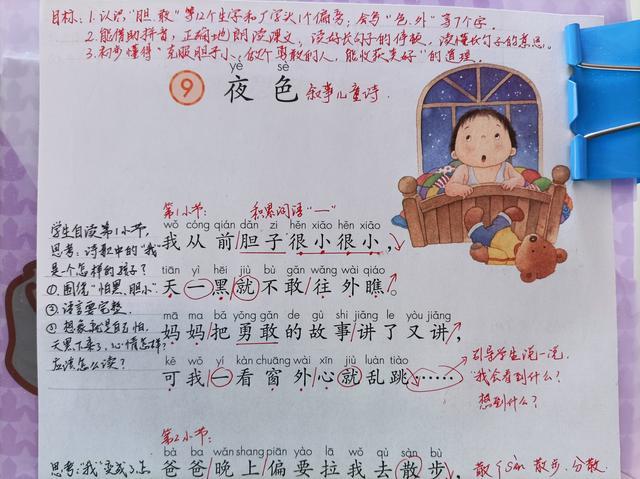 目标：1.认识"胆、敢"等12个生字和广字头1个偏旁；会写"色、外"等7个字．
2.能借助拼音，正确地朗读课文，读好长句子的停顿，读懂长句子的意思。
3.初步懂得"克服胆子小，做个勇敢的人，能收获美好"的道理．
yè sè
9 夜色 叙事儿童诗．
第1小节： 积累词语"一"
学生自读第1小节，
思考：诗歌中的"我"
是个怎样的孩子？
①.围绕"怕黑、胆小"．
②.语言要完整．
③.想象就是自己怕，
天黑下来了，心情怎样？
应该怎么读？
wǒ cóng qián dǎn zi hěn xiǎo hěn xiǎo
我从前/胆子很小很小，
tiān yì hēi jiù bù gǎn wǎng wài qiáo
天一黑/就不敢/往外瞧。
mā ma bǎ yǒng gǎn de gù shi jiǎng le yòu jiǎng
妈妈/把勇敢的故事/讲了又讲，
kě wǒ yí kàn chuāng wài xīn jiù luàn tiào
可我/一看窗外/心就乱跳……
引导学生说一说．
"我会看到什么？
想到什么？
第2小节：
bà ba wǎn shang piān yào lā wǒ qù sàn bù
思考："我"变成了怎
爸爸/晚上/偏要拉我去散步，
散 sǎn 散步 分散